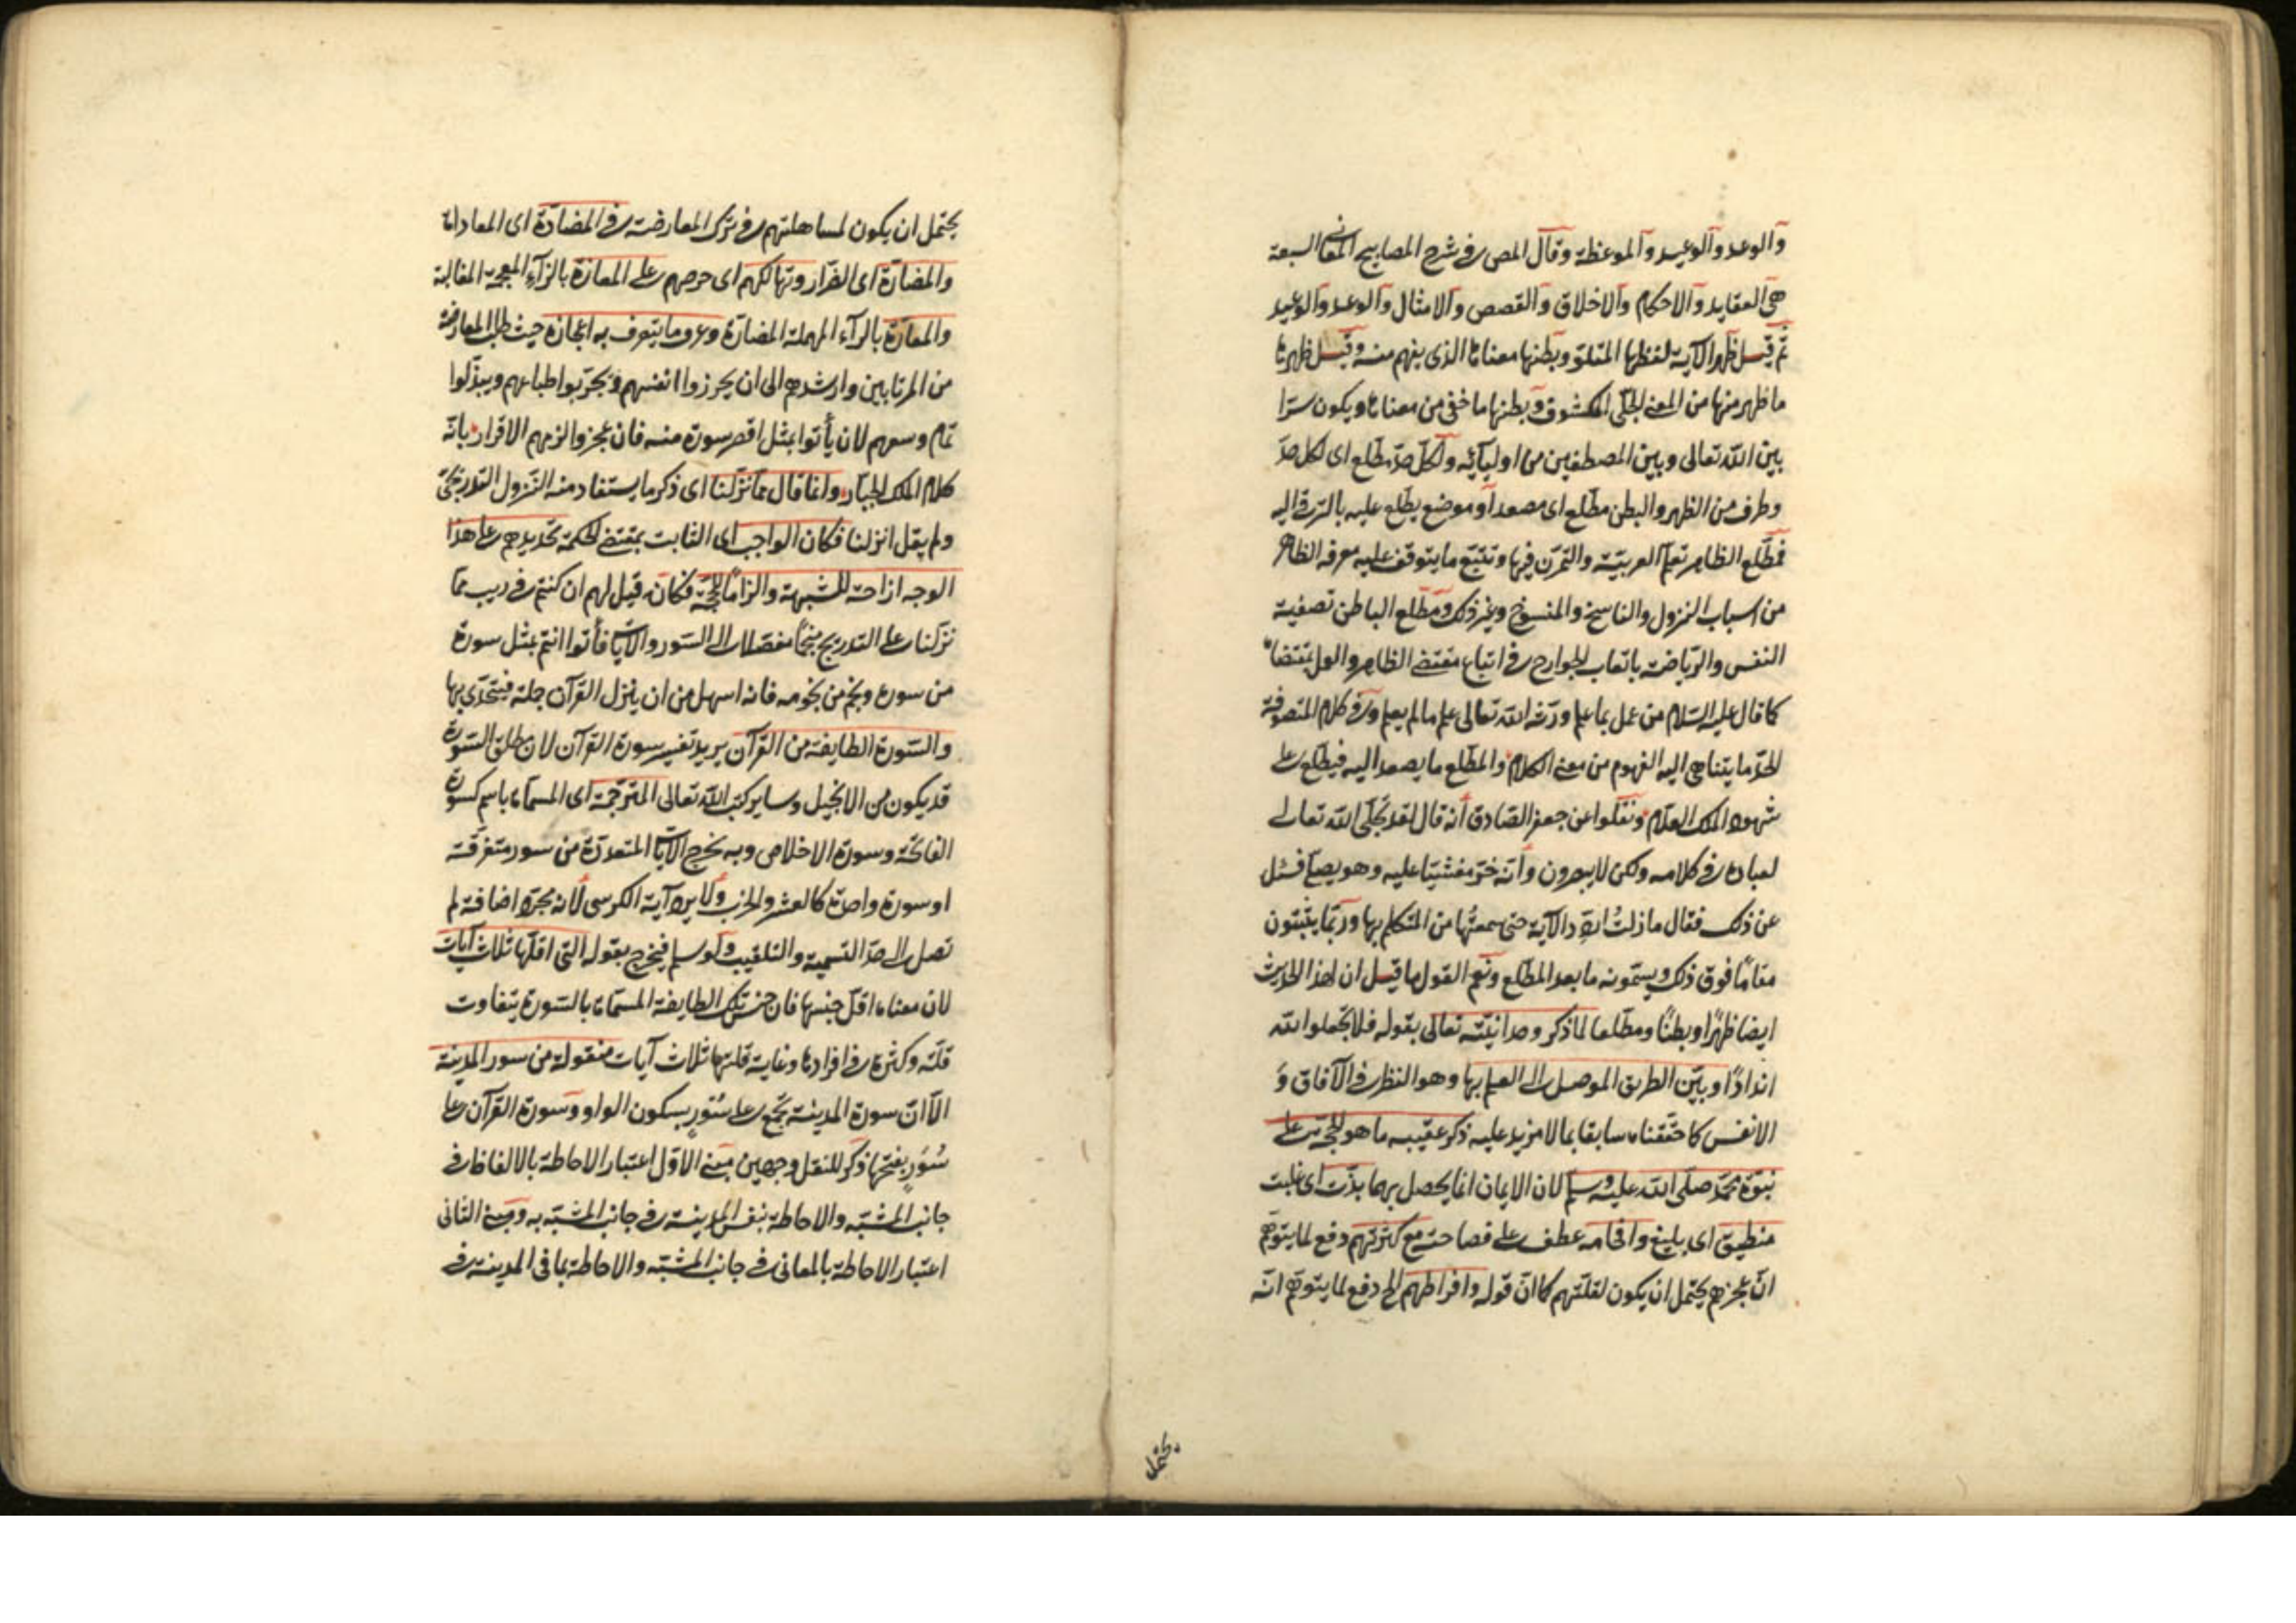 والوعد والوعيد والموعظة وقال المص في شرح المصابيح المعاني السبعة
هي العقايد والاحكام والاخلاق والقصص والامثال والوعد والوعيد
ثم قيل ظهر الآية لفظها المتلو وبطنها معناها الذي يفهم منه وقيل ظهرها
ما ظهر منها من المعنى الجلي المكشوف وبطنها ما خفي من معناها ويكون سرا
بين الله تعالى وبين المصطفين من اوليآئه ولكل حد مطلع اي لكل حد
وطرف من الظهر والبطن مطلع اي مصعد او موضع يطلع عليه بالترقي اليه
فمطلع الظاهر تعلم العربية والتمرن فيها وتتبع ما يتوقف عليه معرفة الظاهر
من اسباب النزول والناسخ والمنسوخ وغير ذلك ومطلع الباطن تصفية
النفس والرياضة باتعاب الجوارح في اتباع مقتضى الظاهر والعمل بمقتضاه
كما قال عليه السلام من عمل بما علم ورثه الله تعالى علم ما لم يعلم وفي كلام المتصوفة
الحد ما يتناهى اليه الفهوم من معنى الكلام والمطلع ما يصعد اليه فيطلع على
شهود الملك العلام ونقلوا عن جعفر الصادق أنه قال لقد تجلى الله تعالى
لعباده في كلامه ولكن لا يبصرون وأنه خر مغشيا عليه وهو يصلي فسئل
عن ذلك فقال ما زلت اردد الآية حتى سمعتها من المتكلم بها وربما يثبتون
مقاما فوق ذلك ويسمونه ما بعد المطلع ونعم القول ما قيل ان لهذا الحديث
ايضا ظهرا وبطنا ومطلعا لما ذكر وحدانيته تعالى بقوله فلا تجعلوا لله
اندادا وبين الطريق الموصل الى العلم بها وهو النظر في الآفاق و
الانفس كما حققناه سابقا بما لا مزيد عليه ذكر عقيبه ما هو الحجة على
نبوة محمد صلى الله عليه وسلم لان الايمان انما يحصل بهما بذت اي غلبت
منطيق اي بليغ وافحامه عطف على فصاحته مع كثرتهم دفع لما يتوهم
ان عجزهم يحتمل ان يكون لقلتهم كما ان قوله وافراطهم الخ دفع لما يتوهم انه
يحتمل
يحتمل ان يكون لمساهلتهم في ترك المعارضة في المضادة اي المعاداة
والمضارة اي الضرار وتهالكهم اي حرصهم على المعازة بالزآء المعجمة المغالبة
والمعارة بالرآء المهملة المضارة وعرف ما يتعرف به اعجازه حيث طلب المعارضة
من المرتابين وارشدهم الى ان يحرزوا انفسهم ويجربوا طباعهم ويبذلوا
تمام وسعهم لان يأتوا بمثل اقصر سورة منه فان عجزوا لزمهم الاقرار بانه
كلام الملك الجبار وانما قال مما نزلنا اي ذكر ما يستفاد منه النزول التدريجي
ولم يقل انزلنا فكان الواجب اي الثابت بمقتضى الحكمة تحديهم على هذا
الوجه ازاحة للشبهة والزاما للحجة فكأنه قيل لهم ان كنتم في ريب مما
نزلنا على التدريج منجما مفصلا الى السور والآيات فأتوا انتم بمثل سورة
من سوره ونجم من نجومه فانه اسهل من ان ينزل القرآن جملة فيتحدى بها
والسورة الطايفة من القرآن يريد تفسير سورة القرآن لان مطلق السورة
قد يكون من الانجيل وساير كتب الله تعالى المترجمة اي المسماة باسم كسورة
الفاتحة وسورة الاخلاص وبه يخرج الآيات المتعددة من سور متفرقة
او سورة واحدة كالعشر والحزب ولا يرد آية الكرسي لانه مجرد اضافة لم
تصل الى حد التسمية والتلقيب ولو سلم فيخرج بقوله التي اقلها ثلاث آيات
لان معناه اقل جنسها فان جنس تلك الطايفة المسماة بالسورة يتفاوت
قلة وكثرة في افرادها وغاية قلتها ثلاث آيات منقولة من سور المدينة
الا ان سورة المدينة تجمع على سور بسكون الواو وسورة القرآن على
سُوَر بفتحها ذكر للنقل وجهين مبنى الاول اعتبار الاحاطة بالالفاظ في
جانب المشبه والاحاطة بنفس المدينة في جانب المشبه به ومبنى الثاني
اعتبار الاحاطة بالمعاني في جانب المشبه والاحاطة بما في المدينة في